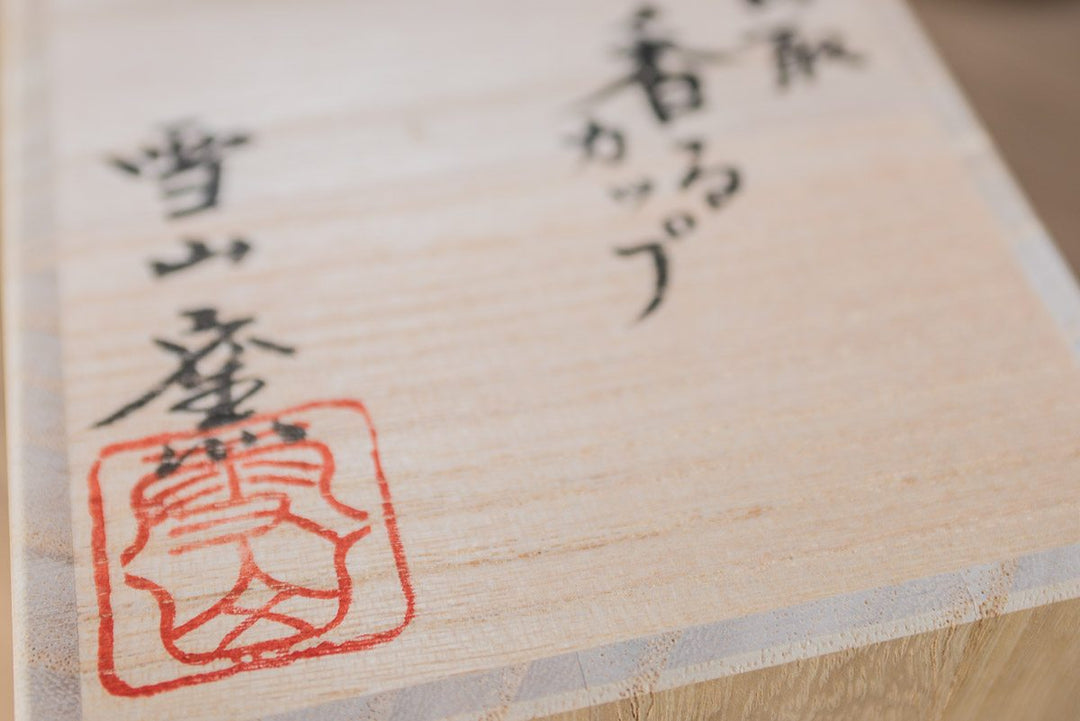 取
香る
カップ
雪山窯